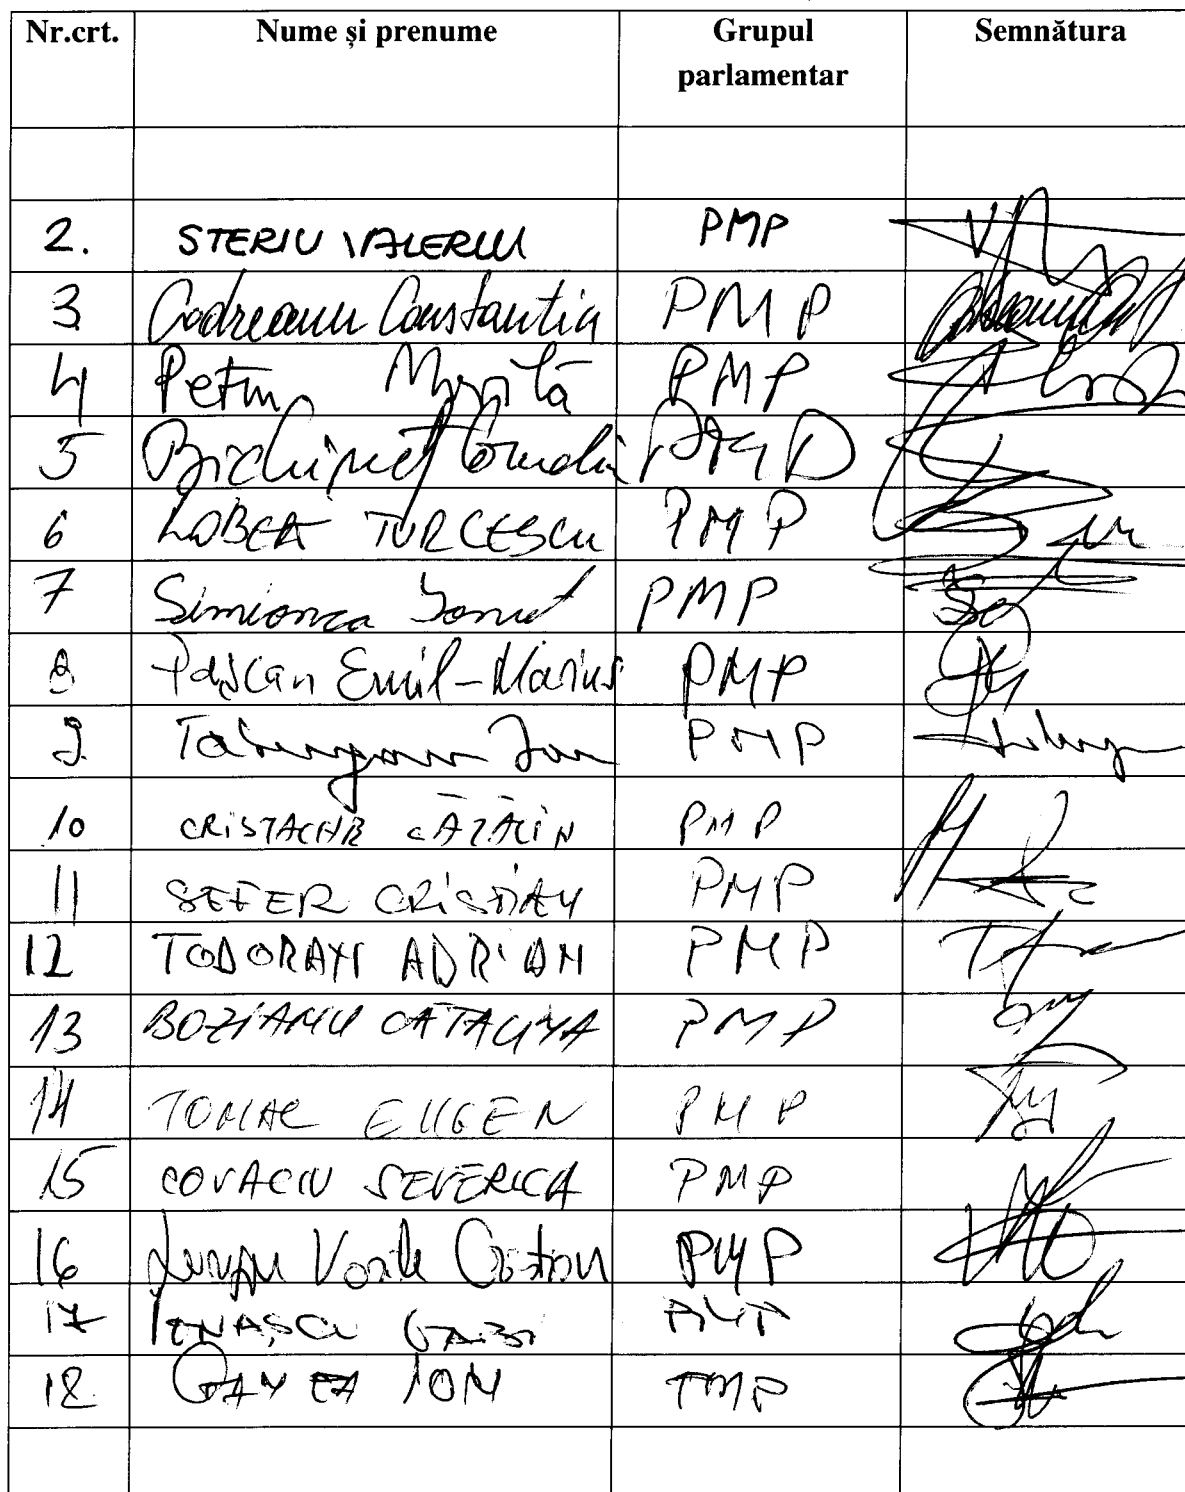 Nr.crt. Nume și prenume Grupul parlamentar Semnătura
2. STERIU VALERIU PMP
3 Codreanu Constantin PMP
4 Petru Movilă PMP
5 Bichineț Corneliu PMP
6 LOBEA TURCESCU PMP
7 Simionca Ionuț PMP
8 Pașcan Emil-Marius PMP
9. Tabugan Ion PMP
10 CRISTACHE CĂTĂLIN PMP
11 SEFER CRISTIAN PMP
12 TODORAN ADRIAN PMP
13 BOZIANU CATALINA PMP
14 TOMAC EUGEN PMP
15 COVACIU SEVERICA PMP
16 Lungu Vasile Cristian PMP
17 IONAȘCU GABI PMP
18 GANEA ION PMP